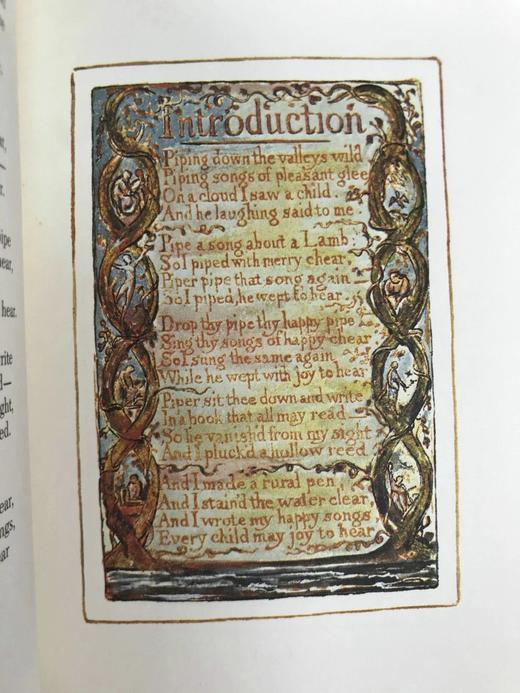 er,
—
r.
pipe
ear,
hear.
rite
d—
ght,
ed.
ear,
ngs,
ar
Introduction
Piping down the valleys wild
Piping songs of pleasant glee
On a cloud I saw a child.
And he laughing said to me.
Pipe a song about a Lamb:
So I piped with merry chear,
Piper pipe that song again—
So I piped, he wept to hear.
Drop thy pipe thy happy pipe
Sing thy songs of happy chear
So I sung the same again
While he wept with joy to hear
Piper sit thee down and write
In a book that all may read—
So he vanish'd from my sight
And I pluck'd a hollow reed.
And I made a rural pen,
And I stain'd the water clear,
And I wrote my happy songs
Every child may joy to hear